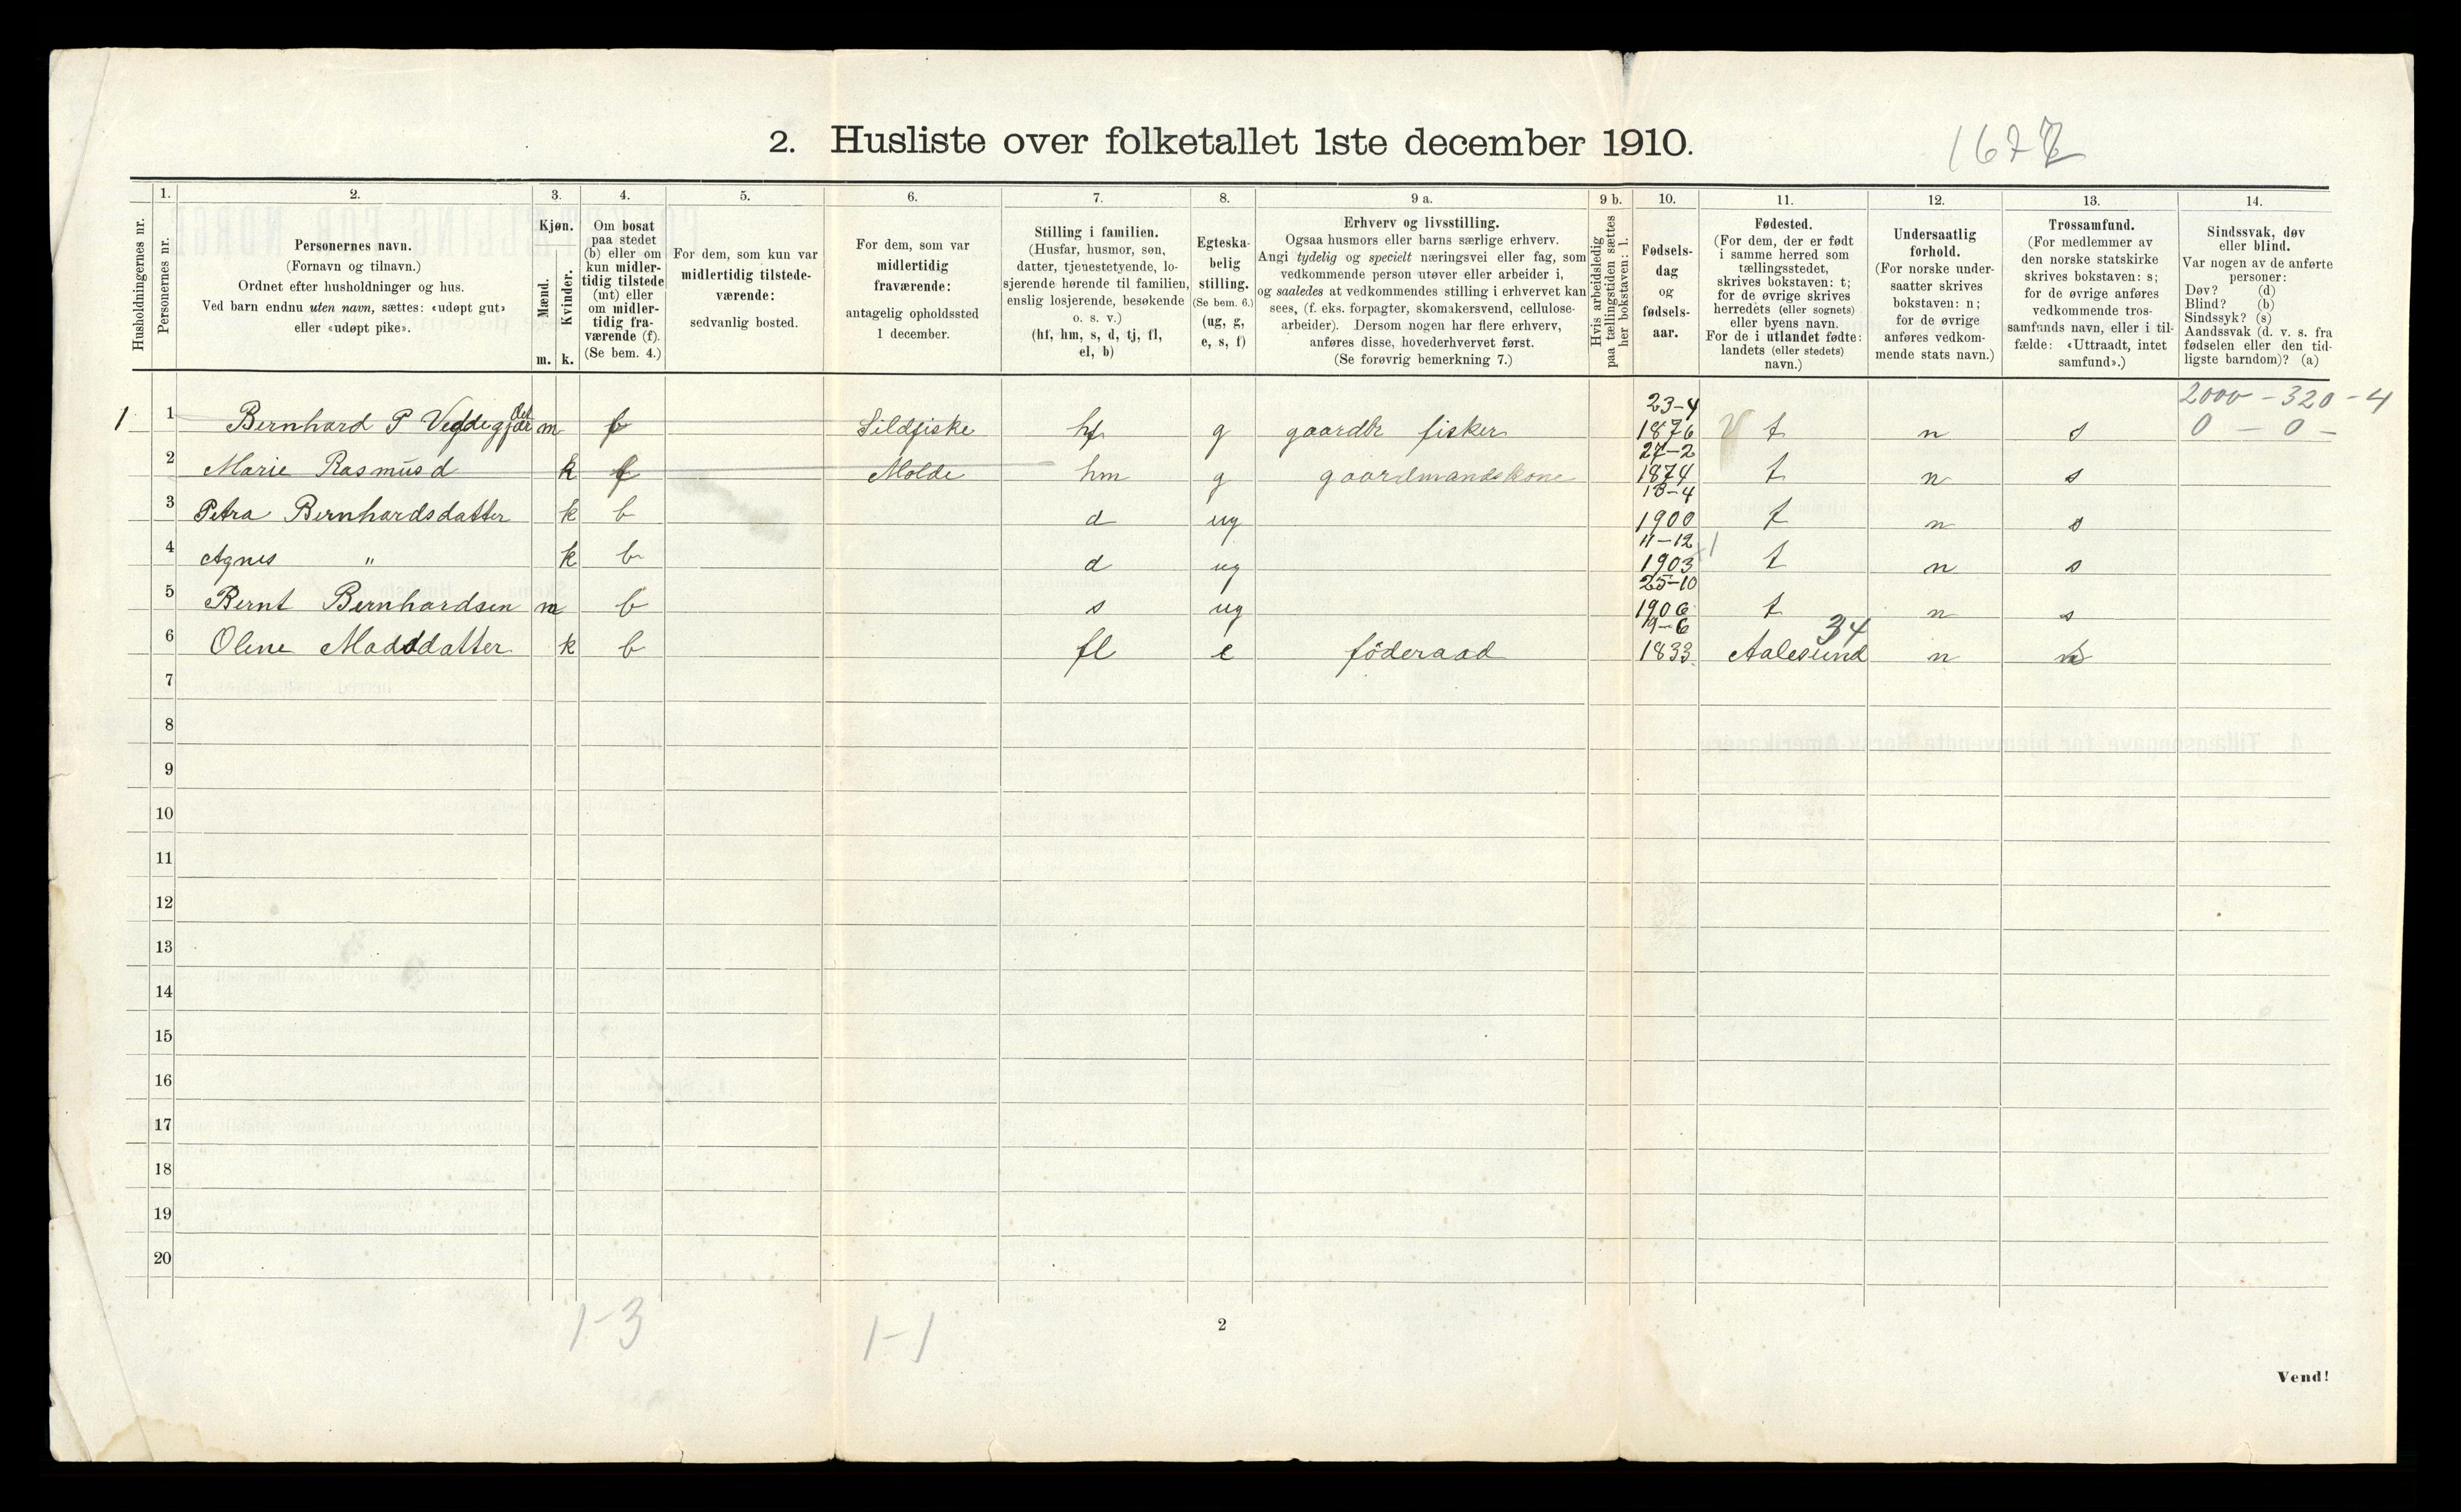 2. Husliste over folketallet 1ste december 1910.
Husholdningernes nr.
1.
Personernes nr.
2.
Personernes navn.
(Fornavn og tilnavn.)
Ordnet efter husholdninger og hus.
Ved barn endnu uten navn, sættes: «udøpt gut»
eller «udøpt pike».
3.
Kjøn.
Mænd.
Kvinder.
m. k.
4.
Om bosat
paa stedet
(b) eller om
kun midler-
tidig tilstede
(mt) eller
om midler-
tidig fra-
værende (f).
(Se bem. 4.)
5.
For dem, som kun var
midlertidig tilstede-
værende:
sedvanlig bosted.
6.
For dem, som var
midlertidig
fraværende:
antagelig opholdssted
1 december.
7.
Stilling i familien.
(Husfar, husmor, søn,
datter, tjenestetyende, lo-
sjerende hørende til familien,
enslig losjerende, besøkende
o. s. v.)
(hf, hm, s, d, tj, fl,
el, b)
8.
Egteska-
belig
stilling.
(Se bem. 6.)
(ug, g,
e, s, f)
9 a.
Erhverv og livsstilling.
Ogsaa husmors eller barns særlige erhverv.
Angi tydelig og specielt næringsvei eller fag, som
vedkommende person utøver eller arbeider i,
og saaledes at vedkommendes stilling i erhvervet kan
sees, (f. eks. forpagter, skomakersvend, cellulose-
arbeider). Dersom nogen har flere erhverv,
anføres disse, hovederhvervet først.
(Se forøvrig bemerkning 7.)
9 b.
Hvis arbeidsledig
paa tællingstiden sættes
her bokstaven: l.
10.
Fødsels-
dag
og
fødsels-
aar.
11.
Fødested.
(For dem, der er født
i samme herred som
tællingsstedet,
skrives bokstaven: t;
for de øvrige skrives
herredets (eller sognets)
eller byens navn.
For de i utlandet fødte:
landets (eller stedets)
navn.)
12.
Undersaatlig
forhold.
(For norske under-
saatter skrives
bokstaven: n;
for de øvrige
anføres vedkom-
mende stats navn.)
13.
Trossamfund.
(For medlemmer av
den norske statskirke
skrives bokstaven: s;
for de øvrige anføres
vedkommende tros-
samfunds navn, eller i til-
fælde: «Uttraadt, intet
samfund».)
14.
Sindssvak, døv
eller blind.
Var nogen av de anførte
personer:
Døv? (d)
Blind? (b)
Sindssyk? (s)
Aandssvak (d. v. s. fra
fødselen eller den tid-
ligste barndom)? (a)
2000 - 320 - 4
1 1 Bernhard P m f Sildfiske hf g gaardbr fisker 23-4 1876 t n s 0 - 0 -
2 Marie Rasmusd k f Molde hm g gaardmandskone 27-2 1874 t n s
3 Petra Bernhardsdatter k b d ug 13-4 1900 t n s
4 Agnes " k b d ug 11-12 1903 t n s
5 Bernt Bernhardsen m b s ug 25-10 1906 t n s
34
6 Oline Madsdatter k b fl e föderaad 9-6 1833 Aalesund n s
7
8
9
10
11
12
13
14
15
16
17
18
19
20
1-3
1-1
2
Vend!